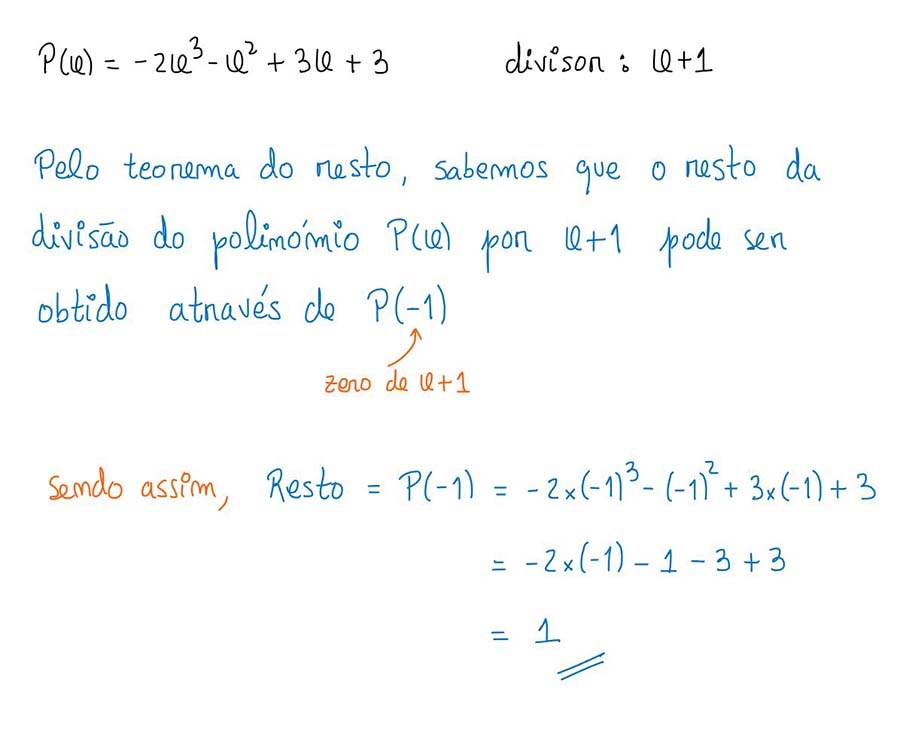 P(x) = -2x³ - x² + 3x + 3 divisor : x+1
Pelo teorema do resto, sabemos que o resto da
divisão do polinómio P(x) por x+1 pode ser
obtido através de P(-1)
zero de x+1
Sendo assim, Resto = P(-1) = -2×(-1)³ - (-1)² + 3×(-1) + 3
= -2×(-1) - 1 - 3 + 3
= 1